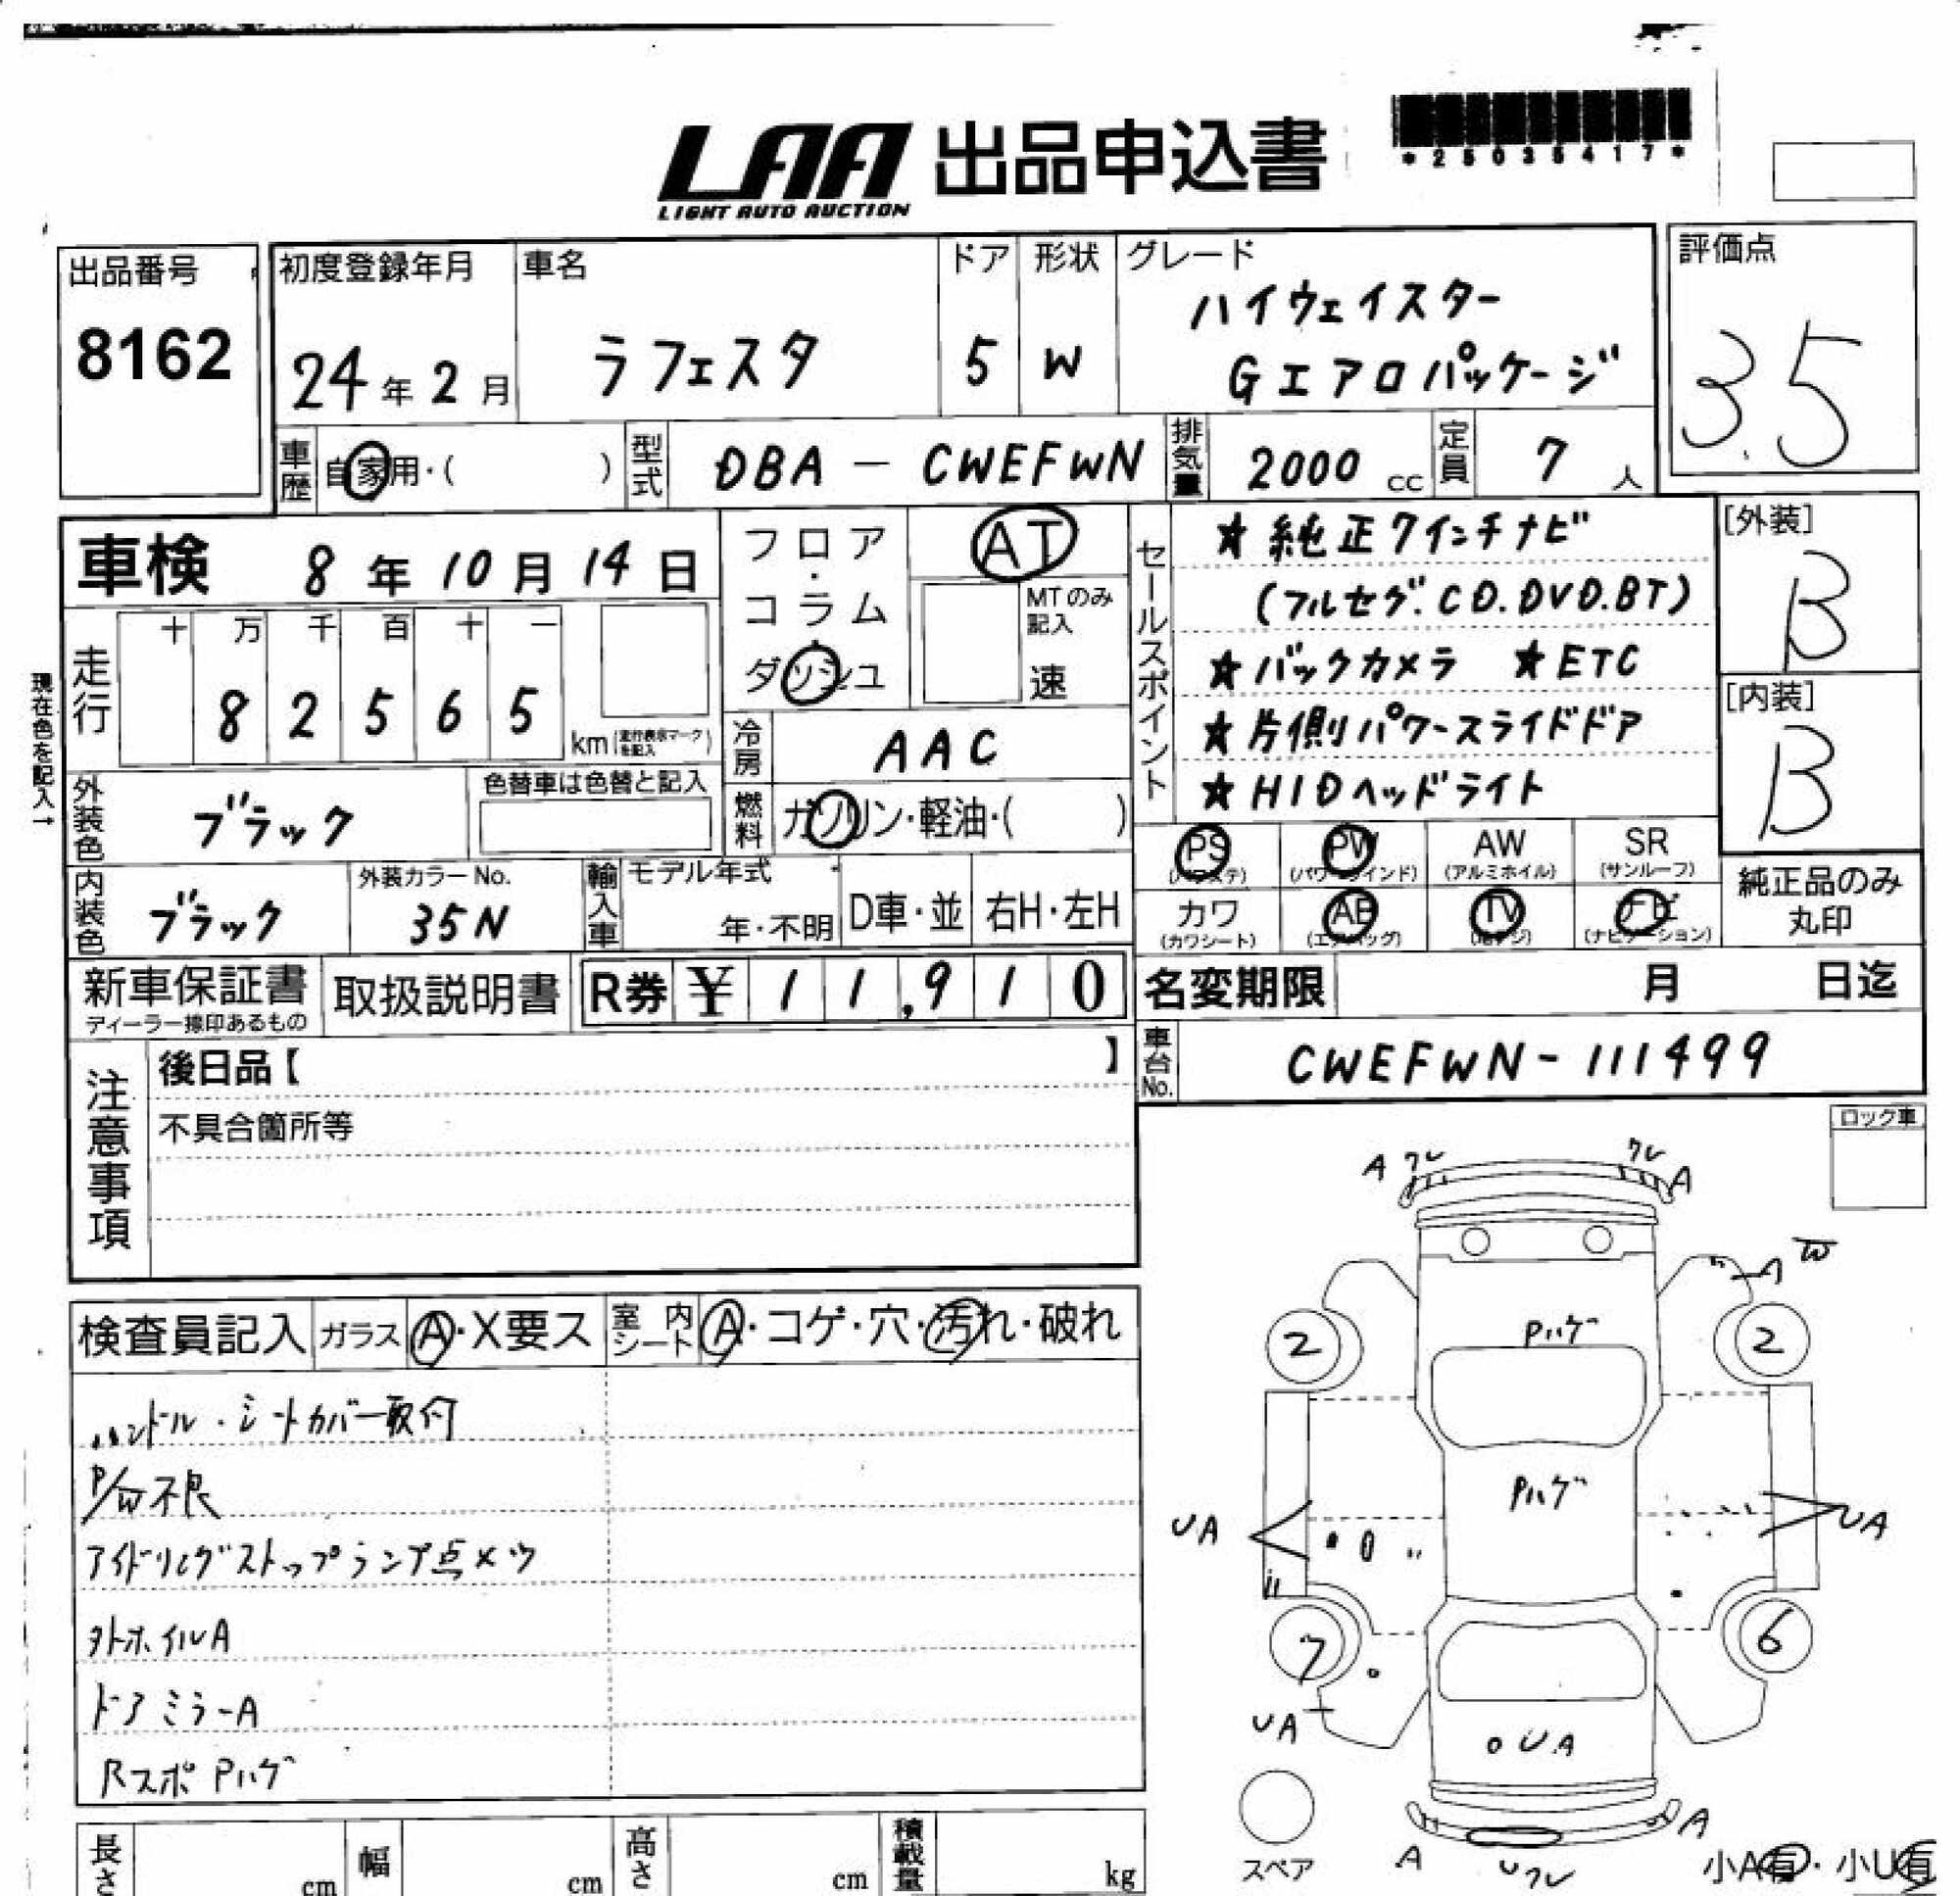 LAA 出品申込書
LIGHT AUTO AUCTION
*25035417*
出品番号
8162
初度登録年月
24年2月
車名
ラフェスタ
ドア
5
形状
W
グレード
ハイウェイスター
Gエアロパッケージ
評価点
3.5
車歴
自家用・( )
型式
DBA - CWEFWN
排気量
2000 cc
定員
7 人
車検 8年10月14日
フロア・コラム・ダッシュ
AT
MTのみ記入
速
セールスポイント
★純正7インチナビ
(フルセグ.CD.DVD.BT)
★バックカメラ ★ETC
★片側パワースライドドア
★HIDヘッドライト
[外装]
B
[内装]
B
現在色を記入→
走行
十 万 千 百 十 一
8 2 5 6 5
km(走行表示マークを記入)
冷房
AAC
外装色
ブラック
色替車は色替と記入
燃料
ガソリン・軽油・( )
PS
(パワステ)
PW
(パワーウインド)
AW
(アルミホイル)
SR
(サンルーフ)
内装色
ブラック
外装カラーNo.
35N
輸入車
モデル年式
年・不明
D車・並
右H・左H
カワ
(カワシート)
AB
(エアバッグ)
TV
ナビ
(ナビゲーション)
純正品のみ
丸印
新車保証書
ディーラー捺印あるもの
取扱説明書
R券 ¥ 11,910
名変期限 月 日迄
注意事項
後日品【 】
不具合箇所等
車台No.
CWEFWN-111499
ロック車
検査員記入
ガラス
A・X要ス
室内シート
A・コゲ・穴・汚れ・破れ
ハンドル・シートカバー取付
P/W不良
アイドリングストップランプ点メツ
外ホイルA
ドアミラーA
RスポPハゲ
A ワレ ワレ A
A W
2 2
Pハゲ
Pハゲ
UA UA
7 6
UA
○UA
スペア
A Uワレ A
小A有・小U有
長さ cm
幅 cm
高さ cm
積載量 kg